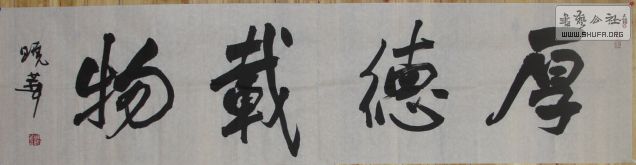 厚德載物
曉華
書藝公社
WWW.SHUFA.ORG